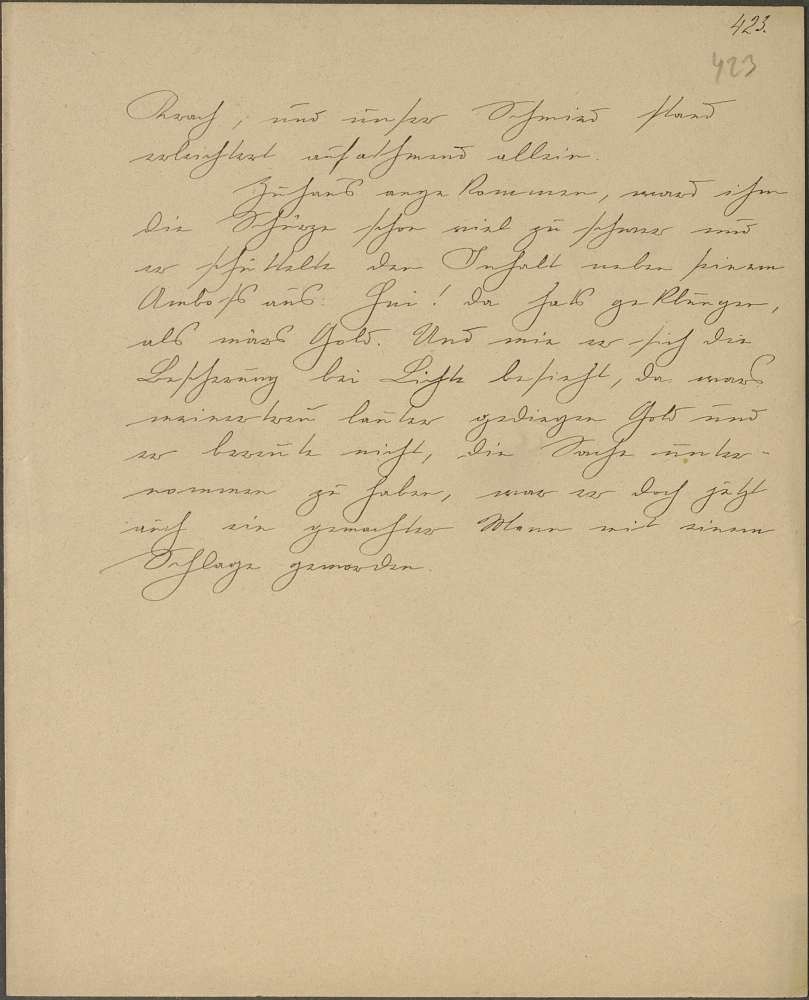 423.
423
Krach, und unser Schmied stand
erleichtert aufathmend allein.
Zuhaus angekommen, ward ihm
die Schürze schon viel zu schwer und
er schüttelte den Inhalt neben seinem
Amboss aus: Hui! da hats geklungen,
als wärs Gold. Und wie er sich die
Bescherung bei Lichte besieht, da wars
meinertreu lauter gediegen Gold und
er bereute nicht, die Sache unter-
nommen zu haben, war er doch jetzt
auch ein gemachter Mann mit einem
Schlage geworden.